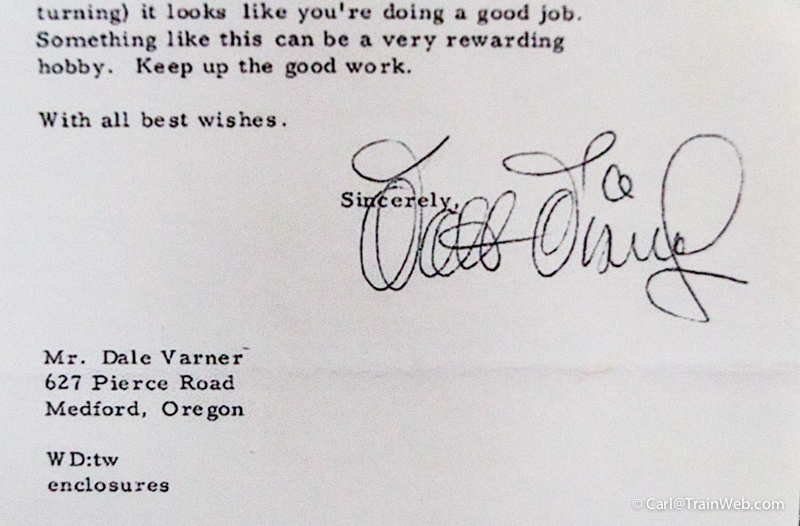 turning) it looks like you're doing a good job.
Something like this can be a very rewarding
hobby. Keep up the good work.
With all best wishes.
Sincerely,
Walt Disney
Mr. Dale Varner
627 Pierce Road
Medford, Oregon
WD:tw
enclosures
© Carl@TrainWeb.com